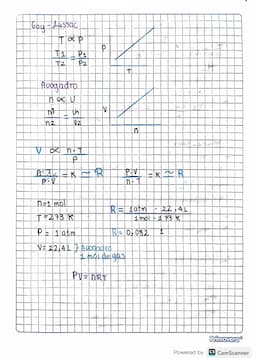 Gay-Lussac
T ∝ P
T1/T2 = P1/P2
P
T
Avogadro
n ∝ V
n1/n2 = V1/V2
V
n
V ∝ n·T/P
n·T/P·V = K ≃ R
P·V/n·T = K ≃ R
n=1 mol
T=273 K
P = 1 atm
V= 22,4 L } Avogadro
1 mol de gas
R = 1atm · 22,4L / 1mol · 273 K
R= 0,082
PV = nRT
Powered by CamScanner